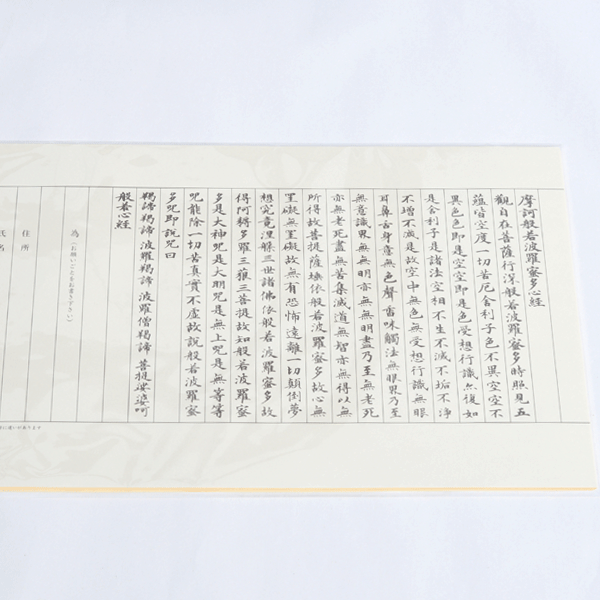 摩訶般若波羅蜜多心経
觀自在菩薩行深般若波羅蜜多時照見五
蘊皆空度一切苦厄舍利子色不異空空不
異色色即是空空即是色受想行識亦復如
是舍利子是諸法空相不生不滅不垢不浄
不增不減是故空中無色無受想行識無眼
耳鼻舌身意無色聲香味觸法無眼界乃至
無意識界無無明亦無無明盡乃至無老死
亦無老死盡無苦集滅道無智亦無得以無
所得故菩提薩埵依般若波羅蜜多故心無
罣礙無罣礙故無有恐怖遠離一切顛倒夢
想究竟涅槃三世諸佛依般若波羅蜜多故
得阿耨多羅三藐三菩提故知般若波羅蜜
多是大神咒是大明咒是無上咒是無等等
咒能除一切苦真實不虚故說般若波羅蜜
多咒即說咒曰
羯諦羯諦 波羅羯諦 波羅僧羯諦 菩提娑婆訶
般若心経
為(お願いごとをお書き下さい)
住所
氏名